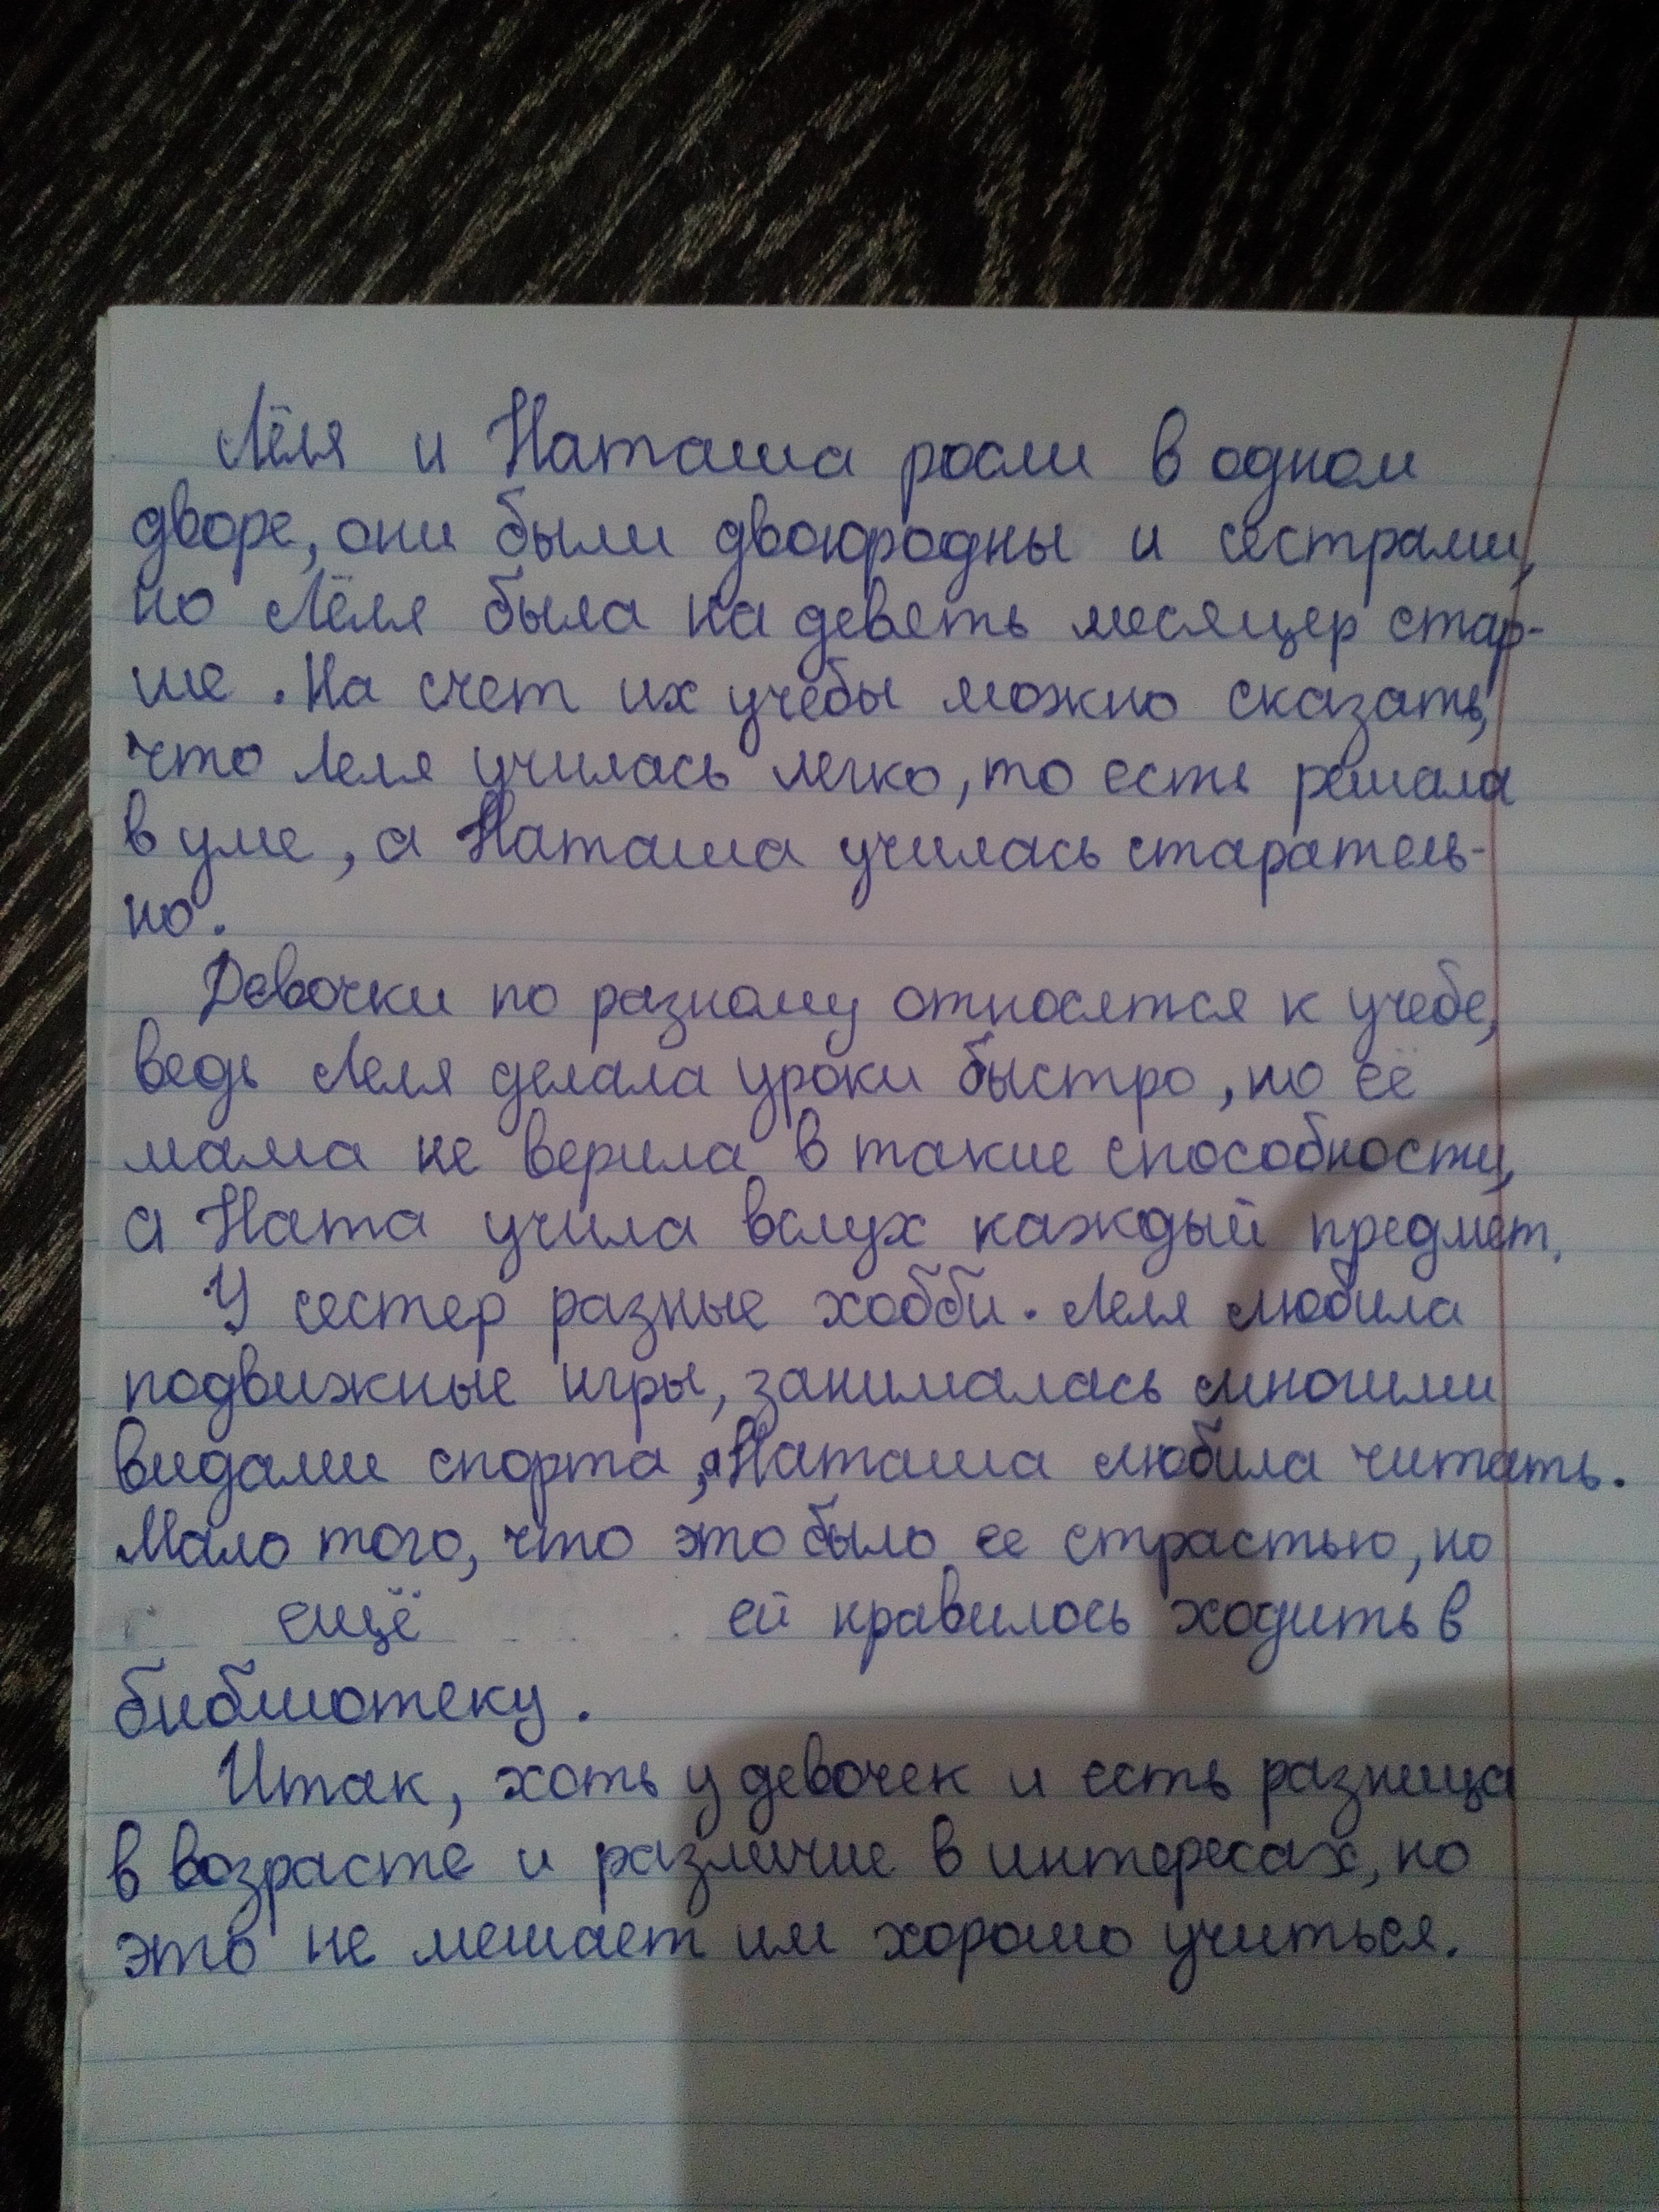 Лёля и Наташа росли в одном
дворе, они были двоюродны и сестрами,
но Лёля была на деветь месяцер стар-
ше. На счет их учебы можно сказать,
что Леля училась легко, то есть решала
в уме, а Наташа училась старатель-
но.
Девочки по разному относятся к учебе,
ведь Леля делала уроки быстро, но её
мама не верила в такие способности,
а Ната учила вслух каждый предмет.
У сестер разные хобби. Леля любила
подвижные игры, занималась многими
видами спорта, а Наташа любила читать.
Мало того, что это было ее страстью, но
ещё ей нравилось ходить в
библиотеку.
Итак, хоть у девочек и есть разница
в возрасте и различие в интересах, но
это не мешает им хорошо учиться.